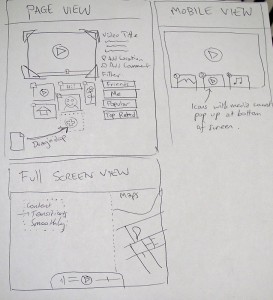 PAGE VIEW
Video Title
Add Location
Add Comment
Filter
Friends
Me
Popular
Top Rated
Drag + drop
MOBILE VIEW
Icons with media
pop up at bottom
of screen.
FULL SCREEN VIEW
MAPS
Content